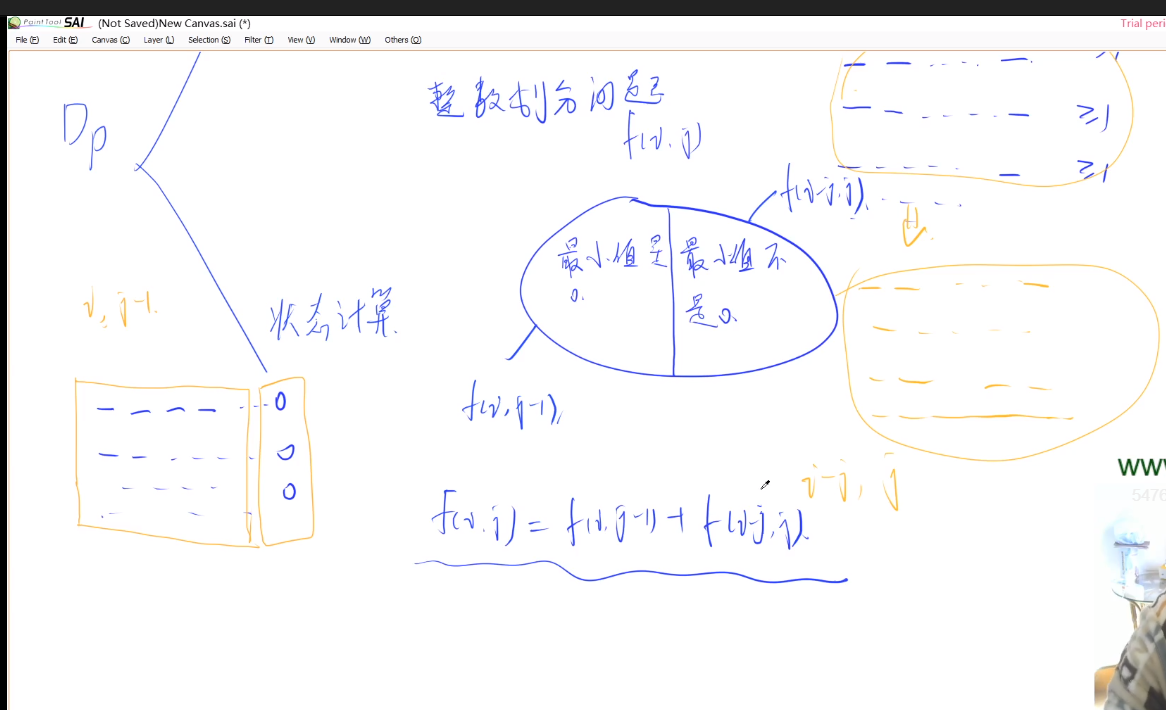 PaintTool SAI (Not Saved)New Canvas.sai (*)
Trial peri
File (F) Edit (E) Canvas (C) Layer (L) Selection (S) Filter (T) View (V) Window (W) Others (O)
Dp
整数划分问题
f(i, j)
≥1
≥1
f(i-j, j)
最小值是
0.
最小值不
是0.
i, j-1.
状态计算.
f(i, j-1),
0
0
0
i-j, j
f(i, j) = f(i, j-1) + f(i-j, j).
WWW
5476